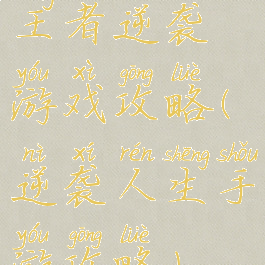 王者逆袭
yóu xì gōng lüè
游戏攻略(
nì xí rén shēng shǒu
逆袭人生手
yóu gōng lüè
游攻略)